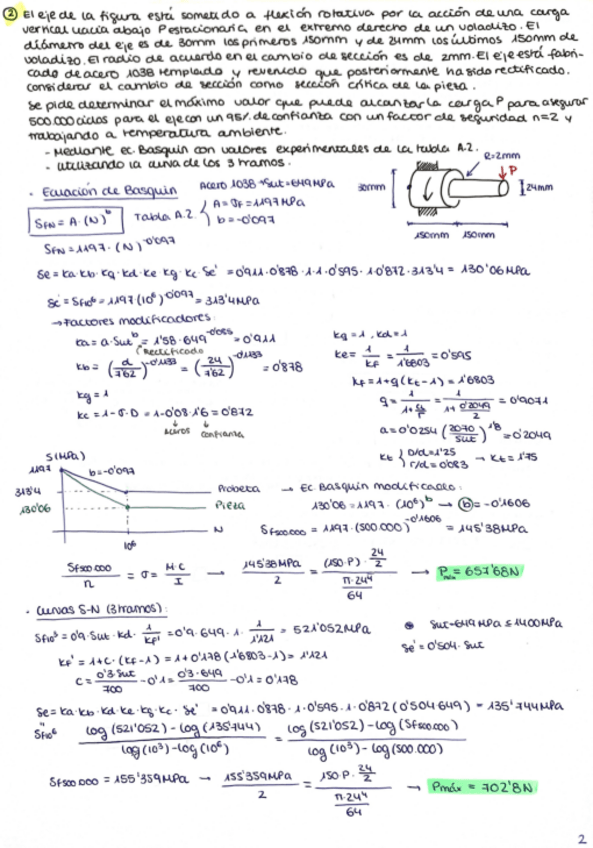 ② El eje de la figura está sometido a flexión rotativa por la acción de una carga
vertical hacia abajo P estacionaria en el extremo derecho de un voladizo. El
diámetro del eje es de 30mm los primeros 150mm y de 24mm los últimos 150mm de
voladizo. El radio de acuerdo en el cambio de sección es de 2mm. El eje está fabri-
cado de acero 1038 templado y revenido que posteriormente ha sido rectificado.
Considerar el cambio de sección como sección crítica de la pieza.
Se pide determinar el máximo valor que puede alcanzar la carga P para asegurar
500.000 ciclos para el eje con un 95% de confianza con un factor de seguridad n=2 y
trabajando a temperatura ambiente.
- Mediante ec. Basquin con valores experimentales de la tabla A.2.
- Utilizando la curva de los 3 tramos.
R=2mm
P
30mm
24mm
150mm 150mm
· Ecuación de Basquin Acero 1038 → Sut=649MPa
SfN = A·(N)^b Tabla A.2. { A = σF = 1197 MPa
b = -0'097
SfN = 1197·(N)^-0'097
Se = ka·kb·kg·kd·ke·kg·kc·Se' = 0'911·0'878·1·1·0'595·1·0'872·313'4 = 130'06MPa
Se' = Sf10⁶ = 1197(10⁶)^0'097 = 313'4MPa
→ Factores modificadores:
ka = a·Sut^b = 1'58·649^-0'085 = 0'911
(Rectificado
kb = (d/7'62)^-0'1133 = (24/7'62)^-0'1133 = 0'878
kg = 1
kc = 1-σ·D = 1-0'08·1'6 = 0'872
aceros confianza
kg = 1, kd = 1
ke = 1/kf = 1/1'6803 = 0'595
kf = 1+q(kt-1) = 1'6803
q = 1/(1+a/r) = 1/(1+0'2049/2) = 0'9071
a = 0'0254 (2070/Sut)^1'8 = 0'2049
kt { D/d = 1'25
r/d = 0'083 → kt = 1'75
S(MPa)
1197
313'4
130'06
b=-0'097
Probeta
Pieza
N
10⁶
→ Ec. Basquin modificada:
130'06 = 1197·(10⁶)^b → b = -0'1606
Sf500.000 = 1197·(500.000)^-0'1606 = 145'38MPa
Sf500.000/n = σ = M·C/I → 145'38MPa/2 = (150·P)·24/2 / (π·24⁴/64) → Pmáx = 657'68N
· Curvas S-N (3 tramos):
Sf10³ = 0'9·Sut·kd·1/kf' = 0'9·649·1·1/1'121 = 521'052MPa
kf' = 1+C·(kf-1) = 1+0'178(1'6803-1) = 1'121
C = 0'3·Sut/700 - 0'1 = 0'3·649/700 - 0'1 = 0'178
Sut=649MPa ≤ 1400MPa
Se' = 0'504·Sut
Se = ka·kb·kd·ke·kg·kc·Se' = 0'911·0'878·1·0'595·1·0'872(0'504·649) = 135'744MPa
"
Sf10⁶
log(521'052)-log(135'744) / log(10³)-log(10⁶) = log(521'052)-log(Sf500.000) / log(10³)-log(500.000)
Sf500.000 = 155'359MPa → 155'359MPa/2 = 150·P·24/2 / (π·24⁴/64) → Pmáx = 702'8N
2